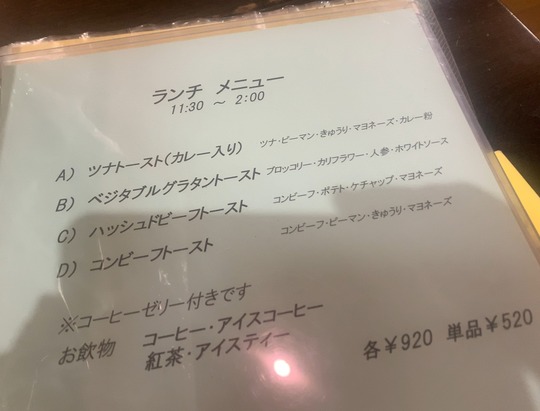 ランチ メニュー
11:30 ～ 2:00
A) ツナトースト(カレー入り) ツナ・ピーマン・きゅうり・マヨネーズ・カレー粉
B) ベジタブルグラタントースト ブロッコリー・カリフラワー・人参・ホワイトソース
C) ハッシュドビーフトースト コンビーフ・ポテト・ケチャップ・マヨネーズ
D) コンビーフトースト コンビーフ・ピーマン・きゅうり・マヨネーズ
※コーヒーゼリー付きです
お飲物 コーヒー・アイスコーヒー
紅茶・アイスティー 各￥920 単品￥520